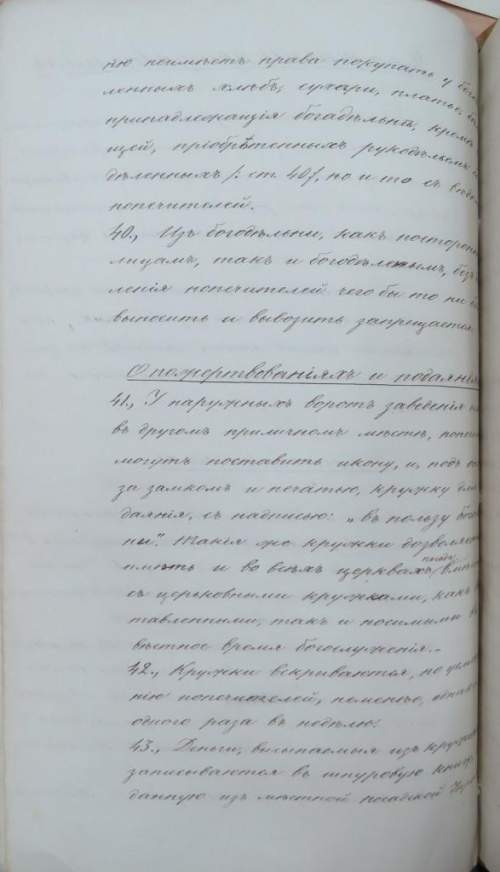 нію неимѣетъ права покупать у бого
ленныхъ хлѣбъ, сухари, платье,
принадлежащія богадѣльнѣ, кромѣ
щей, пріобрѣтенныхъ рукодѣльемъ
дѣленныхъ /: ст. 40/, но и то съ вѣдо
попечителей.
40., Изъ богодѣльни, какъ посторон
лицамъ, такъ и богодѣленнымъ, безъ
ленія попечителей чего бы то ни
выносить и вывозить запрещается
О пожертвованіяхъ и подаянія
41., У наружныхъ воротъ заведенія
въ другомъ приличномъ мѣстѣ, попе
могутъ поставить икону, и, подъ
за замкомъ и печатью, кружку для
даянія, съ надписью: „въ пользу бого
ни". Такія же кружки дозволяет
имѣть и во всѣхъ церквахъ посада,
съ церковными кружками, какъ
тавленными, такъ и носимыми
вѣстное время богослуженія.-
42., Кружки вскриваются, по усмо
нію попечителей, неменѣе, однак
одного раза въ недѣлю:
43., Деньги, висыпаемыя изъ кружки
записываются въ шнуровую книгу,
данную изъ мѣстной посадской